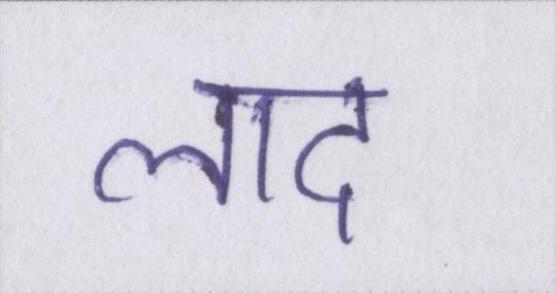 लाद